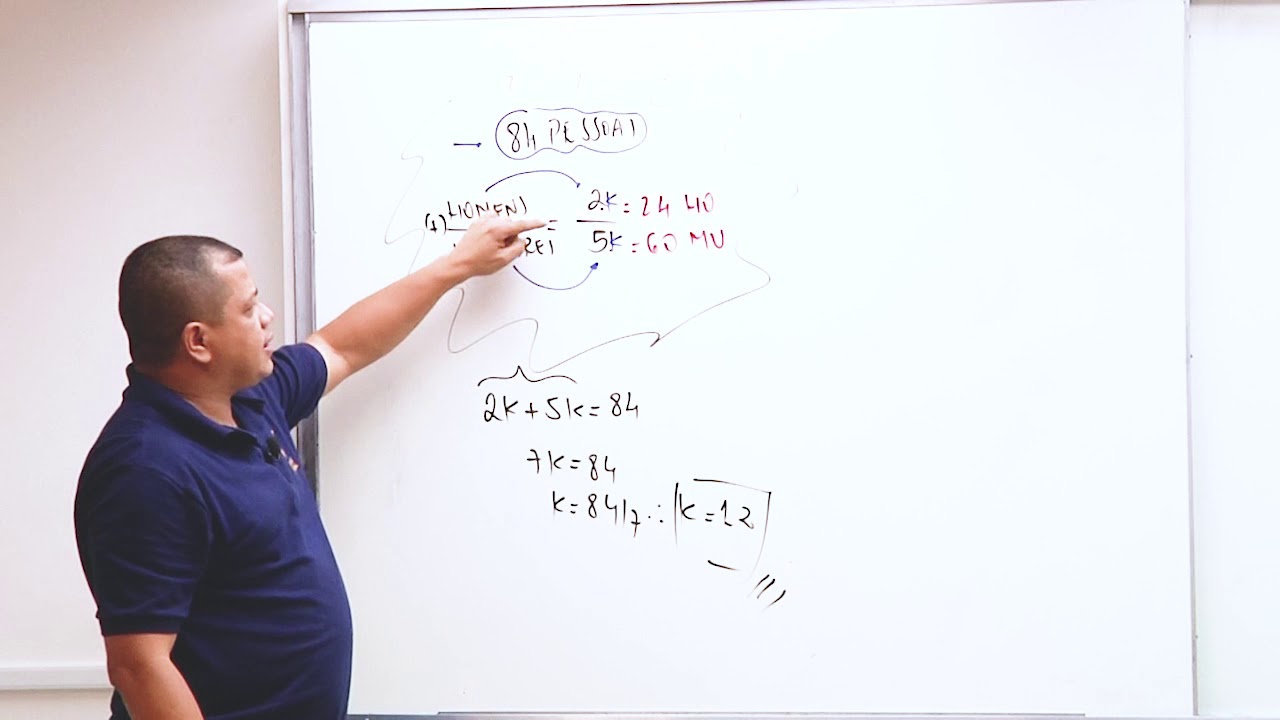 84 PESSOAS
(+) HOMENS = 2K = 24 HO
5K = 60 MU
2K + 5K = 84
7K = 84
K = 84/7 ∴ K = 12